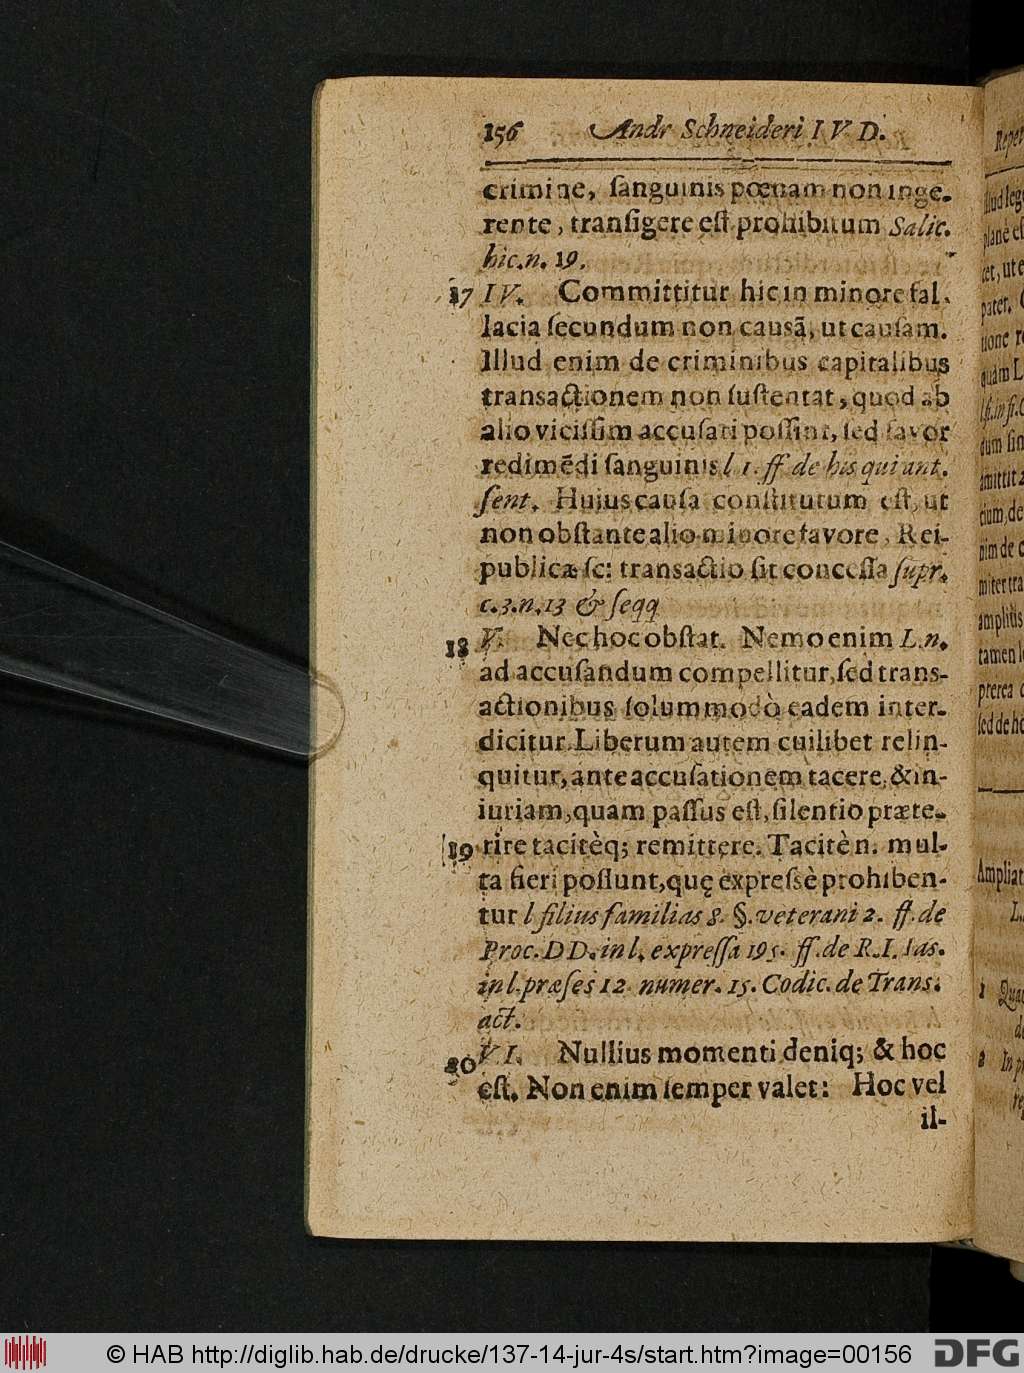 156 Andr Schneideri I V D.
crimine, ſanguinis pœnam non inge-
rente, tranſigere eſt prohibitum Salic.
hic. n. 19.
17 IV. Committitur hic in minore fal-
lacia ſecundum non cauſã, ut cauſam.
Illud enim de criminibus capitalibus
transactionem non ſuſtentat, quod ab
alio viciſſim accuſari poſſint, ſed favor
redimēdi ſanguinis l 1. ff de his qui ant.
ſent. Huius cauſa conſtitutum eſt, ut
non obſtante alio minore favore, Rei-
publicæ ſc: transactio ſit conceſſa ſupr.
c. 3. n. 13 & ſeqq
18 V. Nec hoc obſtat. Nemo enim L. n.
ad accuſandum compellitur, ſed trans-
actionibus ſolummodò eadem inter-
dicitur. Liberum autem cuilibet relin-
quitur, ante accuſationem tacere, & in-
iuriam, quam paſſus eſt, ſilentio præte-
19 rire tacitèq; remittere. Tacitè n. mul-
ta fieri poſſunt, quę expreſsè prohiben-
tur l filius familias 8. §. veterani 2. ff. de
Proc. DD. in l. expreſſa 195. ff. de R. I. Ias.
in l. præſes 12 numer. 15. Codic. de Trans-
act.
20 VI. Nullius momenti deniq; & hoc
eſt. Non enim ſemper valet: Hoc vel
il-
Ampliat
© HAB http://diglib.hab.de/drucke/137-14-jur-4s/start.htm?image=00156
DFG